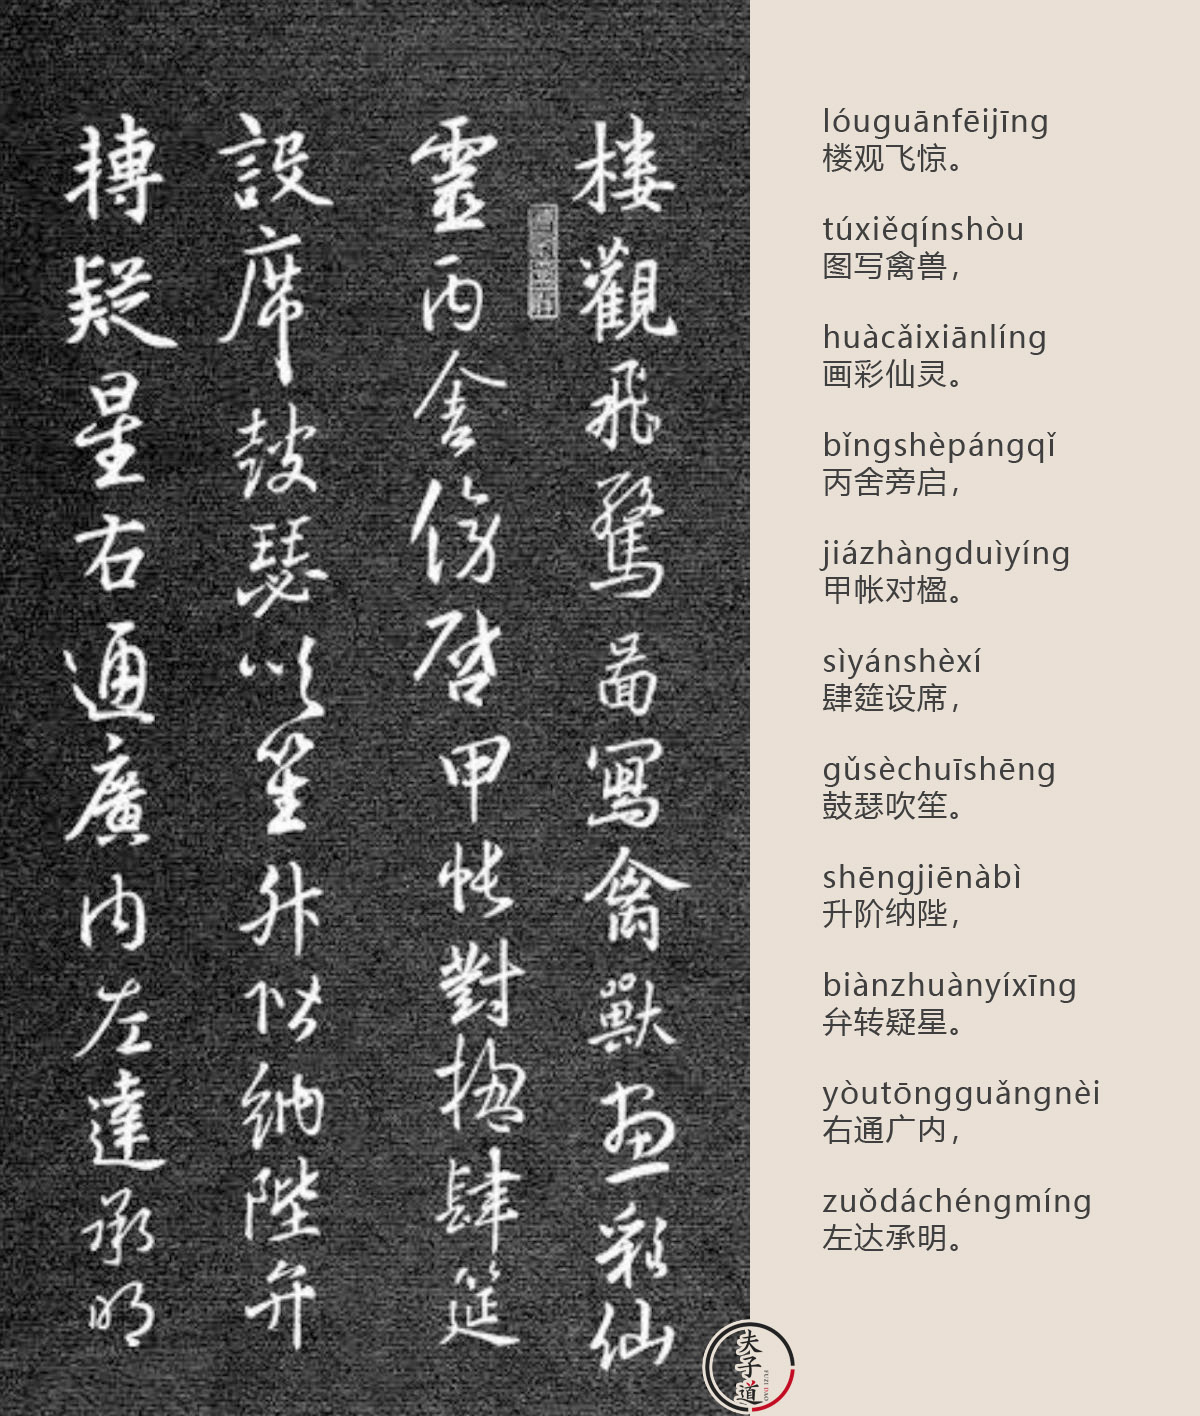 楼觀飛驚啚寫禽獸畫彩仙
靈丙舍傍啓甲帳對楹肆筵
設席鼓瑟吹笙升階納陛弁
摶疑星右通廣内左達承明
lóuguānfēijīng
楼观飞惊。
túxiěqínshòu
图写禽兽，
huàcǎixiānlíng
画彩仙灵。
bǐngshèpángqǐ
丙舍旁启，
jiázhàngduìyíng
甲帐对楹。
sìyánshèxí
肆筵设席，
gǔsèchuīshēng
鼓瑟吹笙。
shēngjiēnàbì
升阶纳陛，
biànzhuànyíxīng
弁转疑星。
yòutōngguǎngnèi
右通广内，
zuǒdáchéngmíng
左达承明。
夫子道
FUZI DAO